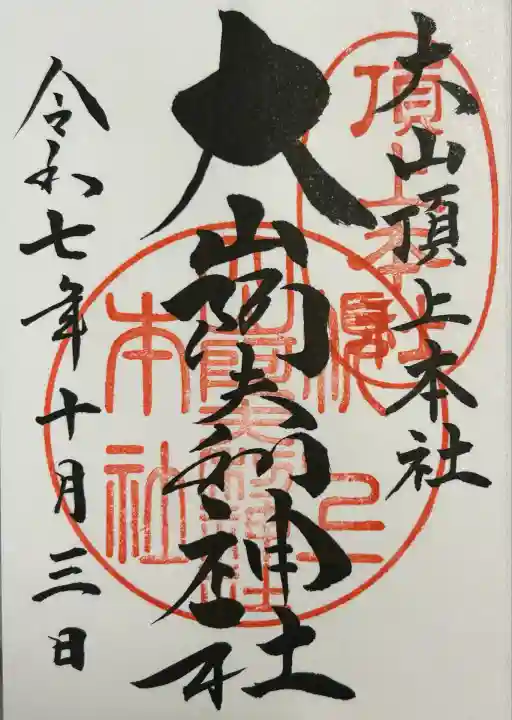 大山頂上本社
大山阿夫利神社
令和七年十月三日
頂上
大山阿夫利神社
本社